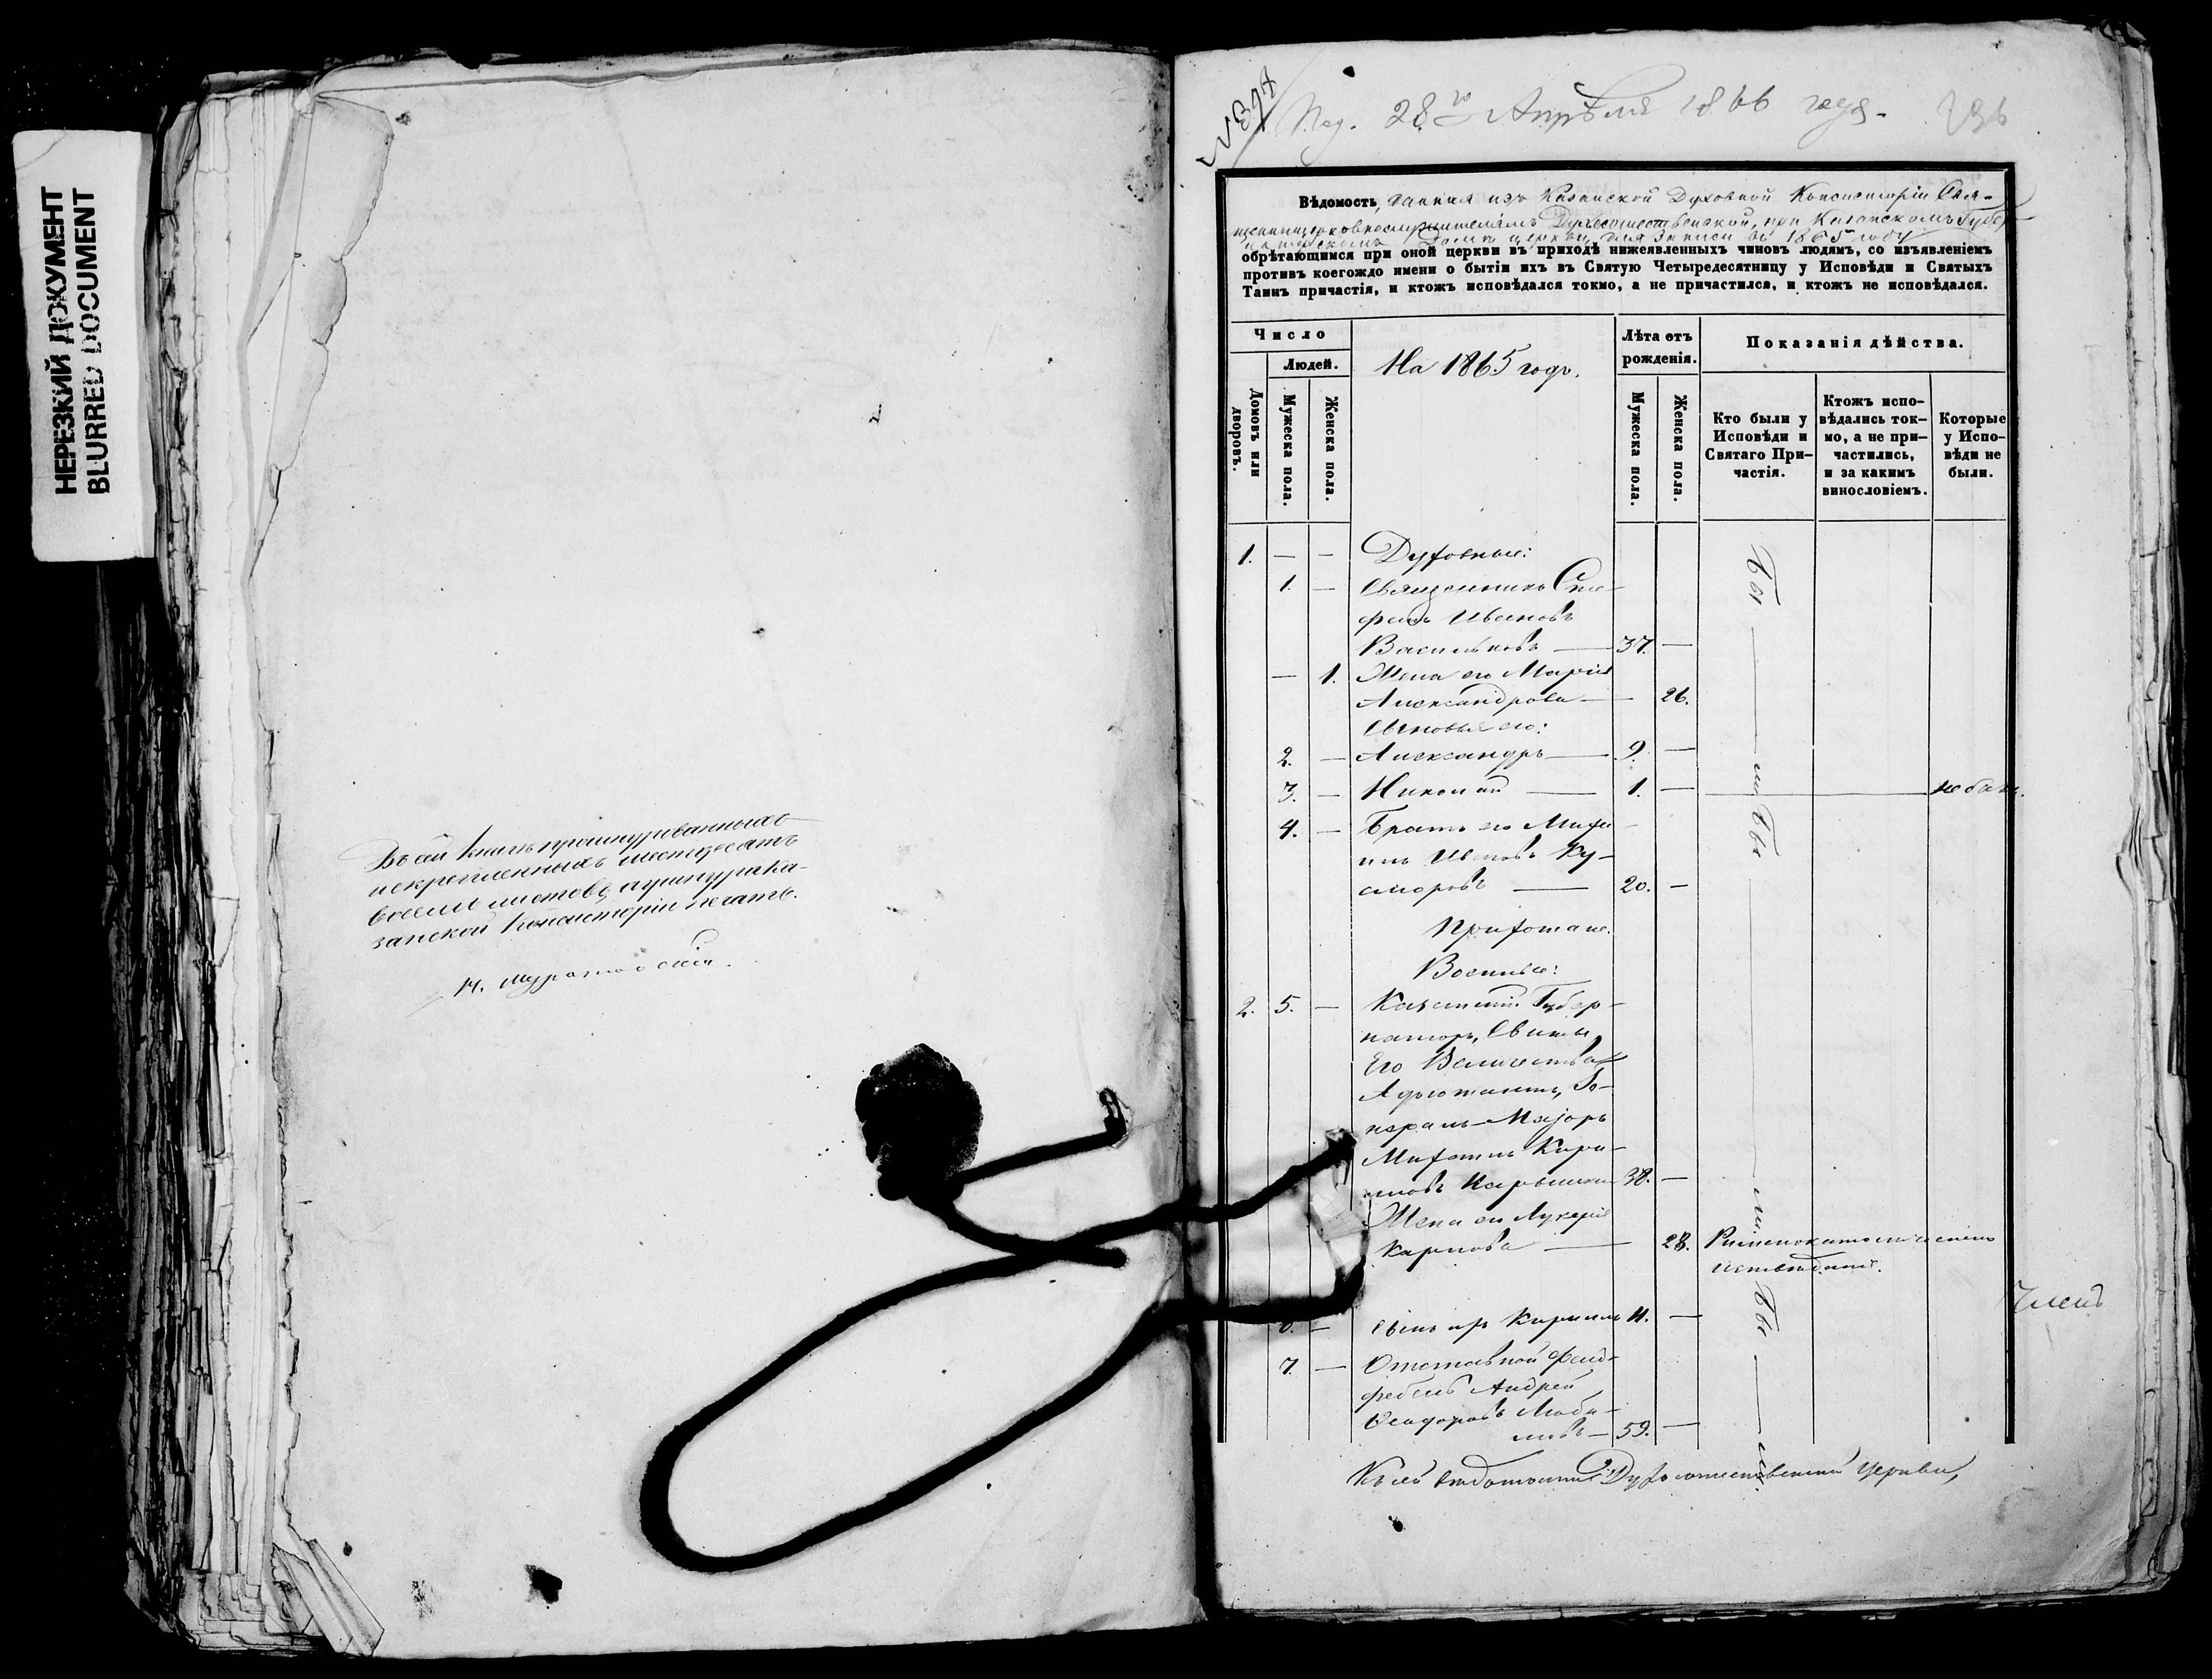 НЕРЕЗКИЙ ДОКУМЕНТ
BLURRED DOCUMENT
Въ сей книгѣ прошнурованныхъ
и скрепленныхъ шестьдесятъ
восемь листовъ, а у шнура Ка-
занской Консисторіи печать.
Под. 28го Апрѣля 1866 года.
Вѣдомость, данная изъ Казанской Духовной Консисторіи Свя-
щенноцерковнослужителямъ Духосошественской, при Казанскомъ Губер-
наторскомъ Домѣ церкви, для записи въ 1865 году
обрѣтающимся при оной церкви въ приходѣ нижеявленныхъ чиновъ людямъ, со изъявленіемъ
противъ коегождо имени о бытіи ихъ въ Святую Четыредесятницу у Исповѣди и Святыхъ
Таинъ причастія, и ктожъ исповѣдался токмо, а не причастился, и ктожъ не исповѣдался.
Число
Людей.
Домовъ или дворовъ.
Мужеска пола.
Женска пола.
На 1865 годъ.
Лѣта отъ
рожденія.
Мужеска пола.
Женска пола.
Показанія дѣйства.
Кто были у
Исповѣди и
Святаго При-
частія.
Ктожъ испо-
вѣдались ток-
мо, а не при-
частились,
и за какимъ
винословіемъ.
Которые
у Испо-
вѣди не
были.
1. — — Духовные:
1. — Священникъ Сте-
фанъ Ивановъ
Васильковъ — 37. —
— 1. Жена его Марія
Александрова — 26.
Сыновья его:
2. — Александръ — 9. —
3. — Николай — 1. — не был.
4. — Братъ его Миха-
илъ Ивановъ
20. —
Прихожане.
Военные:
2. 5. — Казанскій Губер-
наторъ, Свиты
Его Величества
Адъютантъ, Ге-
нералъ-Маіоръ
Михаилъ Кири-
ловъ Нарышкин 38. —
Жена его Лукерія
Карпова — 28. Римскокатолическаго
исповѣданія.
6. — Сынъ ихъ Кириллъ 11. —
7. — Отставной фельд-
фебель Андрей
Ѳеодоровъ Люби-
мовъ — 59. —
Бы — ли
Бы — ли
Бы — ли
Къ сей вѣдомости Духосошественской церкви,
Членъ